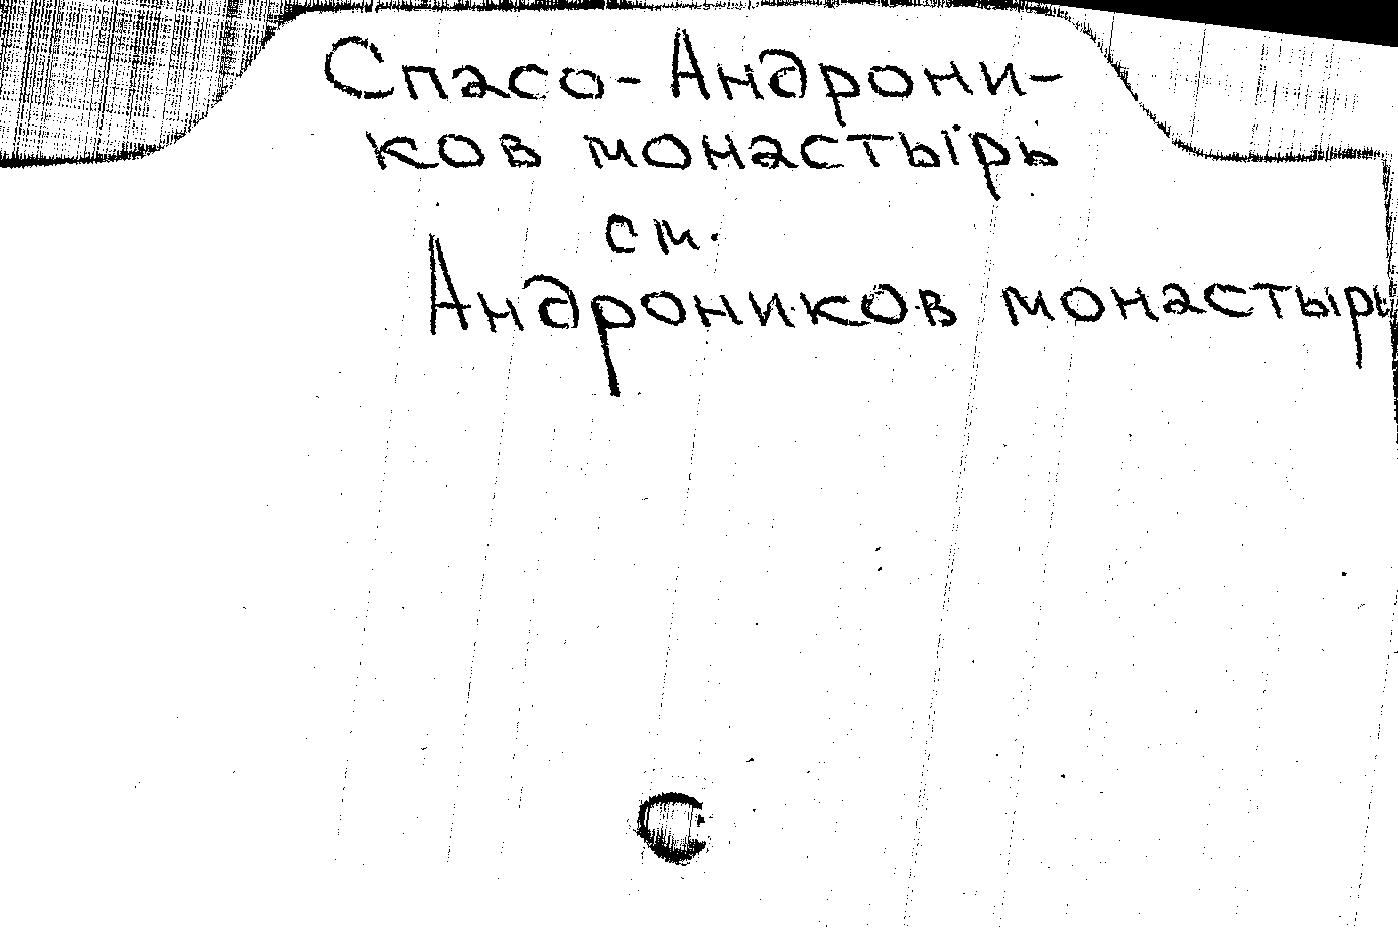 Спасо-Андрони-
ков монастырь
см.
Андроников монастырь